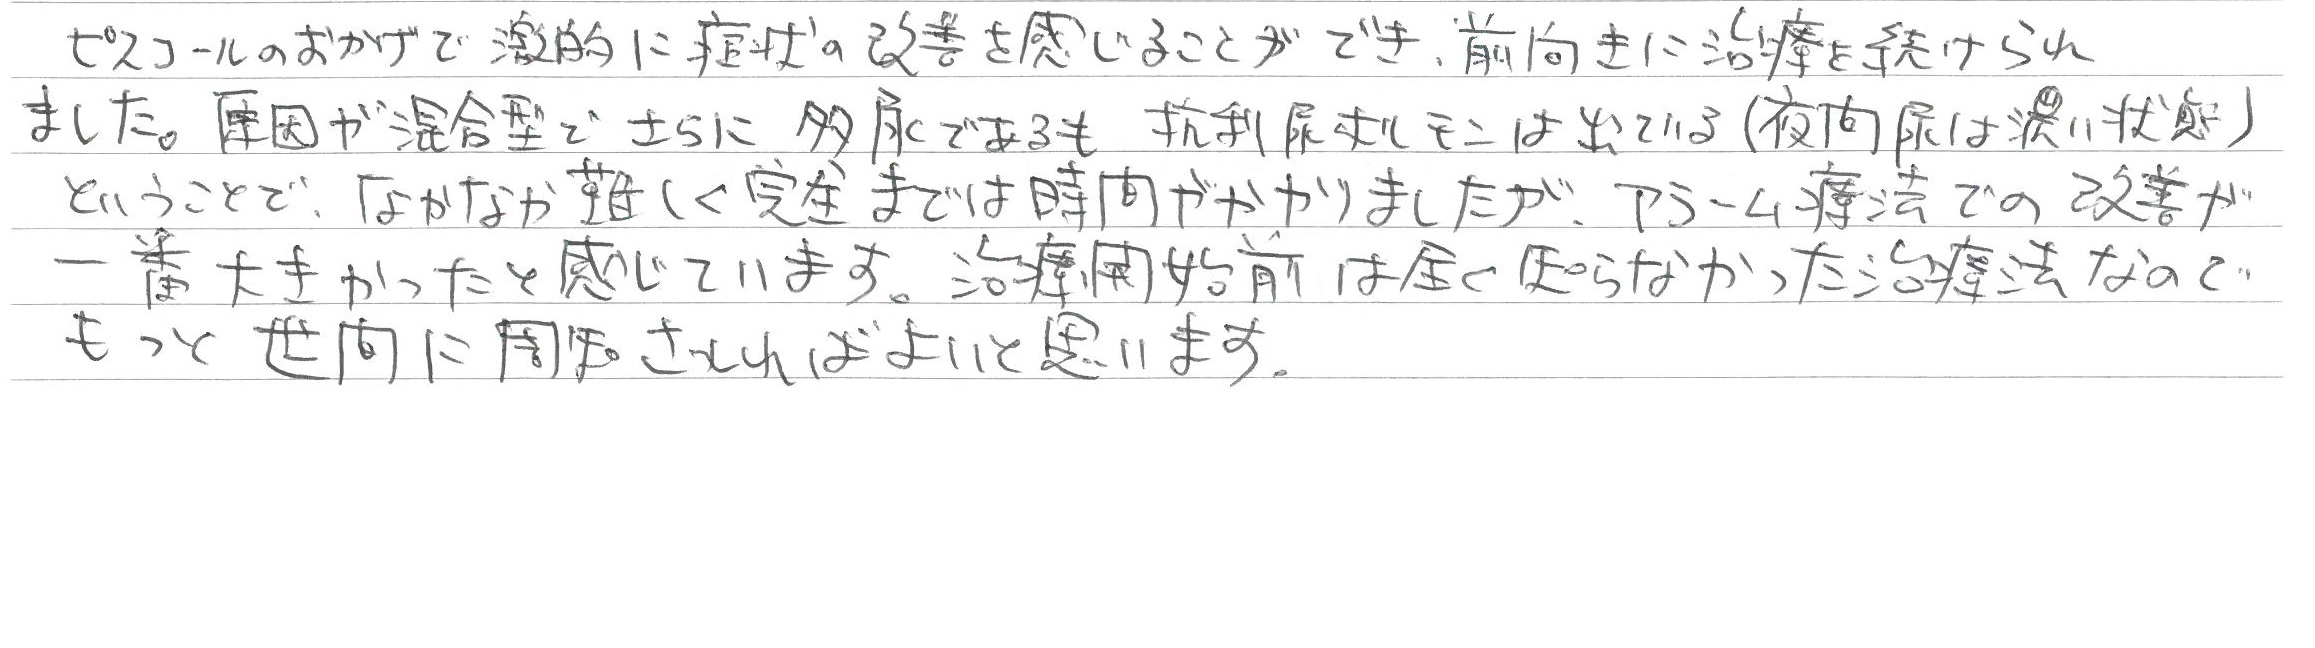 ピスコールのおかげで激的に症状の改善を感じることができ、前向きに治療を続けられ
ました。原因が混合型でさらに多尿であるも抗利尿ホルモンは出ている(夜間尿は濃い状態)
ということで、なかなか難しく完全までは時間がかかりましたが、アラーム療法での改善が
一番大きかったと感じています。治療開始前は全く知らなかった治療法なので
もっと世間に周知されればよいと思います。